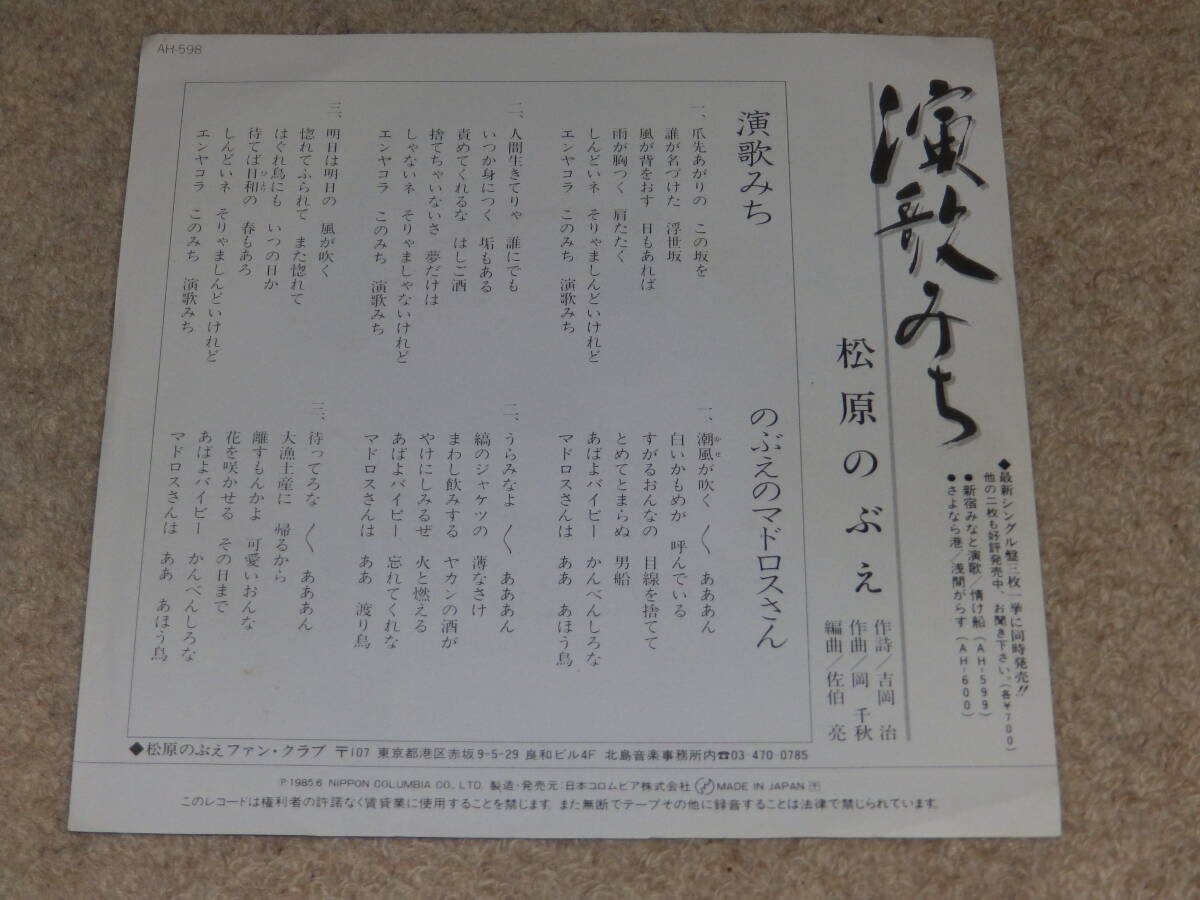 AH-598
演歌みち
松原のぶえ
作詩/吉岡 治
作曲/岡 千秋
編曲/佐伯 亮
◆最新シングル盤三枚一挙に同時発売!!
他の二枚も好評発売中、お聞き下さい。(各¥700)
●新宿みなと演歌/情け船(AH-599)
●さよなら港/浅間がらす(AH-600)
演歌みち
一、爪先あがりの この坂を
誰が名づけた 浮世坂
風が背をおす 日もあれば
雨が胸つく 肩たたく
しんどいネ そりゃましんどいけれど
エンヤコラ このみち 演歌みち
二、人間生きてりゃ 誰にでも
いつか身につく 垢もある
責めてくれるな はしご酒
捨てちゃいないさ 夢だけは
しゃないネ そりゃましゃないけれど
エンヤコラ このみち 演歌みち
三、明日は明日の 風が吹く
惚れてふられて また惚れて
はぐれ鳥にも いつの日か
待てば日和の 春もあろ
しんどいネ そりゃましんどいけれど
エンヤコラ このみち 演歌みち
のぶえのマドロスさん
一、潮風が吹く 〱 あああん
白いかもめが 呼んでいる
すがるおんなの 目線を捨てて
とめてとまらぬ 男船
あばよバイビー かんべんしろな
マドロスさんは ああ あほう鳥
二、うらみなよ 〱 あああん
縞のジャケツの 薄なさけ
まわし飲みする ヤカンの酒が
やけにしみるぜ 火と燃える
あばよバイビー 忘れてくれな
マドロスさんは ああ 渡り鳥
三、待ってろな 〱 あああん
大漁土産に 帰るから
離すもんかよ 可愛いおんな
花を咲かせる その日まで
あばよバイビー かんべんしろな
マドロスさんは ああ あほう鳥
◆松原のぶえファン・クラブ 〒107 東京都港区赤坂9-5-29 良和ビル4F 北島音楽事務所内☎03-470-0785
P.1985.6 NIPPON COLUMBIA CO., LTD. 製造・発売元:日本コロムビア株式会社 MADE IN JAPAN
このレコードは権利者の許諾なく賃貸業に使用することを禁じます。また無断でテープその他に録音することは法律で禁じられています。